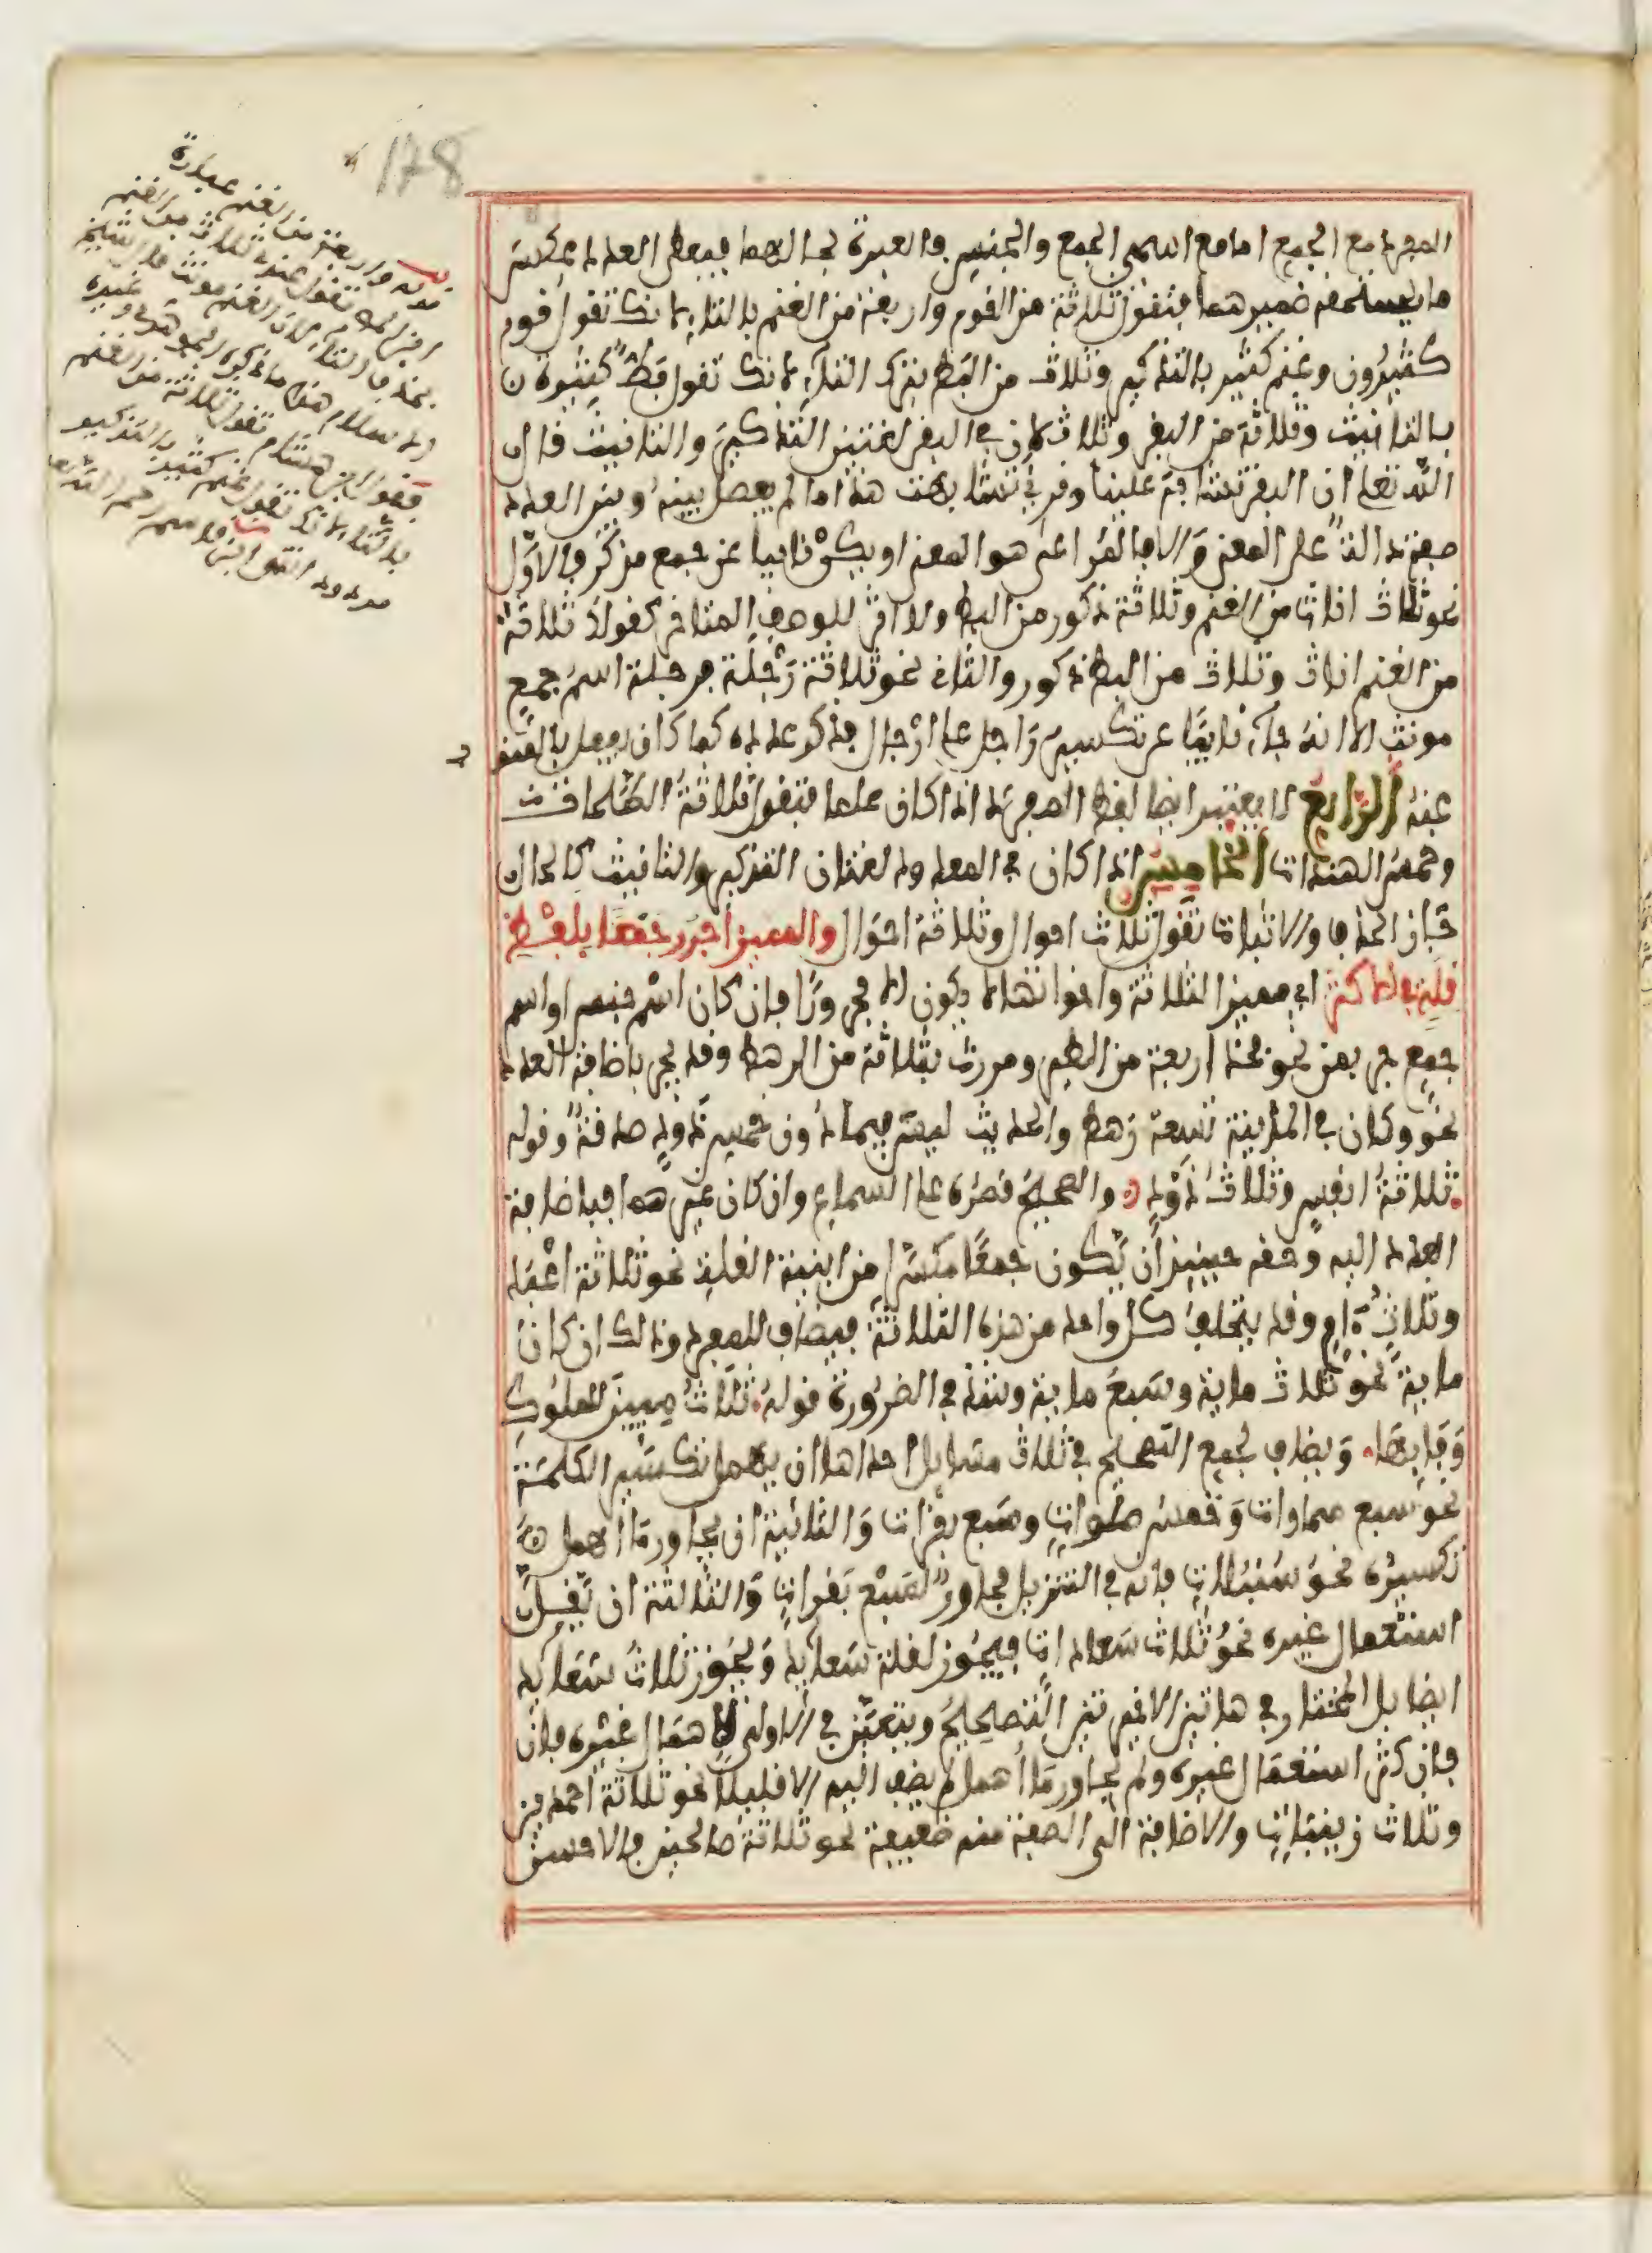 المفرد مع الجمع اما مع اسمي الجمع والجنس فالعبرة بحالهما فيعطى العدد عكس
ما يستحقه ضميرهما فتقول ثلاثة من القوم واربعة من الغنم بالتاء لانك تقول قوم
كثيرون وغنم كثير بالتذكير وثلاث من البط بترك التاء لانك تقول بط كثيرة
بالتانيث وثلاثة من البقر وثلاث لان في البقر لغتين التذكير والتانيث قال
الله تعلى ان البقر تشابه علينا وقرئ تشابهت هذا ما لم يفصل بينه وبين العدد
صفة دالة على المعنى والا فالمراعى هو المعنى او يكن نائبا عن جمع مذكر فالاول
نحو ثلاث اناث من الغنم وثلاثة ذكور من البط ولا اثر للوصف المتاخر كقولك ثلاثة
من الغنم اناث وثلاث من البط ذكور والثاني نحو ثلاثة رجلة فرجلة اسم جمع
مونث الا انه جاء نائبا عن تكسير راجل على ارجال فذكر عدده كما كان يفعل بالمنوب
عنه الرابع لا يعتبر ايضا لفظ المفرد اذا كان علما فتقول ثلاثة الطلحات
وخمس الهندات الخامس اذا كان في المعدود لغتان التذكير والتانيث كالحال
جاز الحذف والاثبات تقول ثلاث احوال وثلاثة احوال والمميز اجرر جمعا بلفظ
قلة في الاكثر اي مميز الثلاثة واخواتها لا يكون الا مجرورا فان كان اسم جنس او اسم
جمع جر بمن نحو فخذ اربعة من الطير ومررت بثلاثة من الرهط وقد يجر باضافة العدد
نحو وكان في المدينة تسعة رهط والحديث ليس فيما دون خمس ذود صدقة وقوله
ثلاثة انفس وثلاث ذود والصحيح قصره على السماع وان كان غيرهما فباضافة
العدد اليه وحقه حينئذ ان يكون جمعا مكسرا من ابنية القلة نحو ثلاثة اعبد
وثلاث ءام وقد يتخلف كل واحد من هذه الثلاثة فيضاف للمفرد وذلك ان كان
ماية نحو ثلاث ماية وسبع ماية وشذ في الضرورة قوله ثلاث ميين للملوك
وفى بها ويضاف لجمع التصحيح في ثلاث مسايل احداها ان يهمل تكسير الكلمة
نحو سبع سماوات وخمس صلوات وسبع بقرات والثانية ان يجاور ما اهمل
تكسيره نحو سنبلات فانه في التنزيل مجاور لسبع بقرات والثالثة ان يقل
استعمال غيره نحو ثلاث سعادات فيجوز لقلة سعايد ويجوز ثلاث سعايد
ايضا بل المختار في هاتين الاخيرتين التصحيح ويتعين في الاولى لاهمال غيره فان
فان كثر استعمال غيره ولم يجاور ما اهمل لم يضف اليه الا قليلا نحو ثلاثة احمدين
وثلاث زينبات والاضافة الى الصفة منه ضعيفة نحو ثلاثة صالحين فالاحسن
178
قوله واربعة من الغنم عبارة
تقول عندي ثلاث من الغنم
بحذف التاء لان الغنم مونث قال الشيخ
هذا ما ذكره الجوهري وغيره
فقول ابن هشام تقول ثلاثة من الغنم
بالتاء لانك تقول غنم كثير بالتذكير